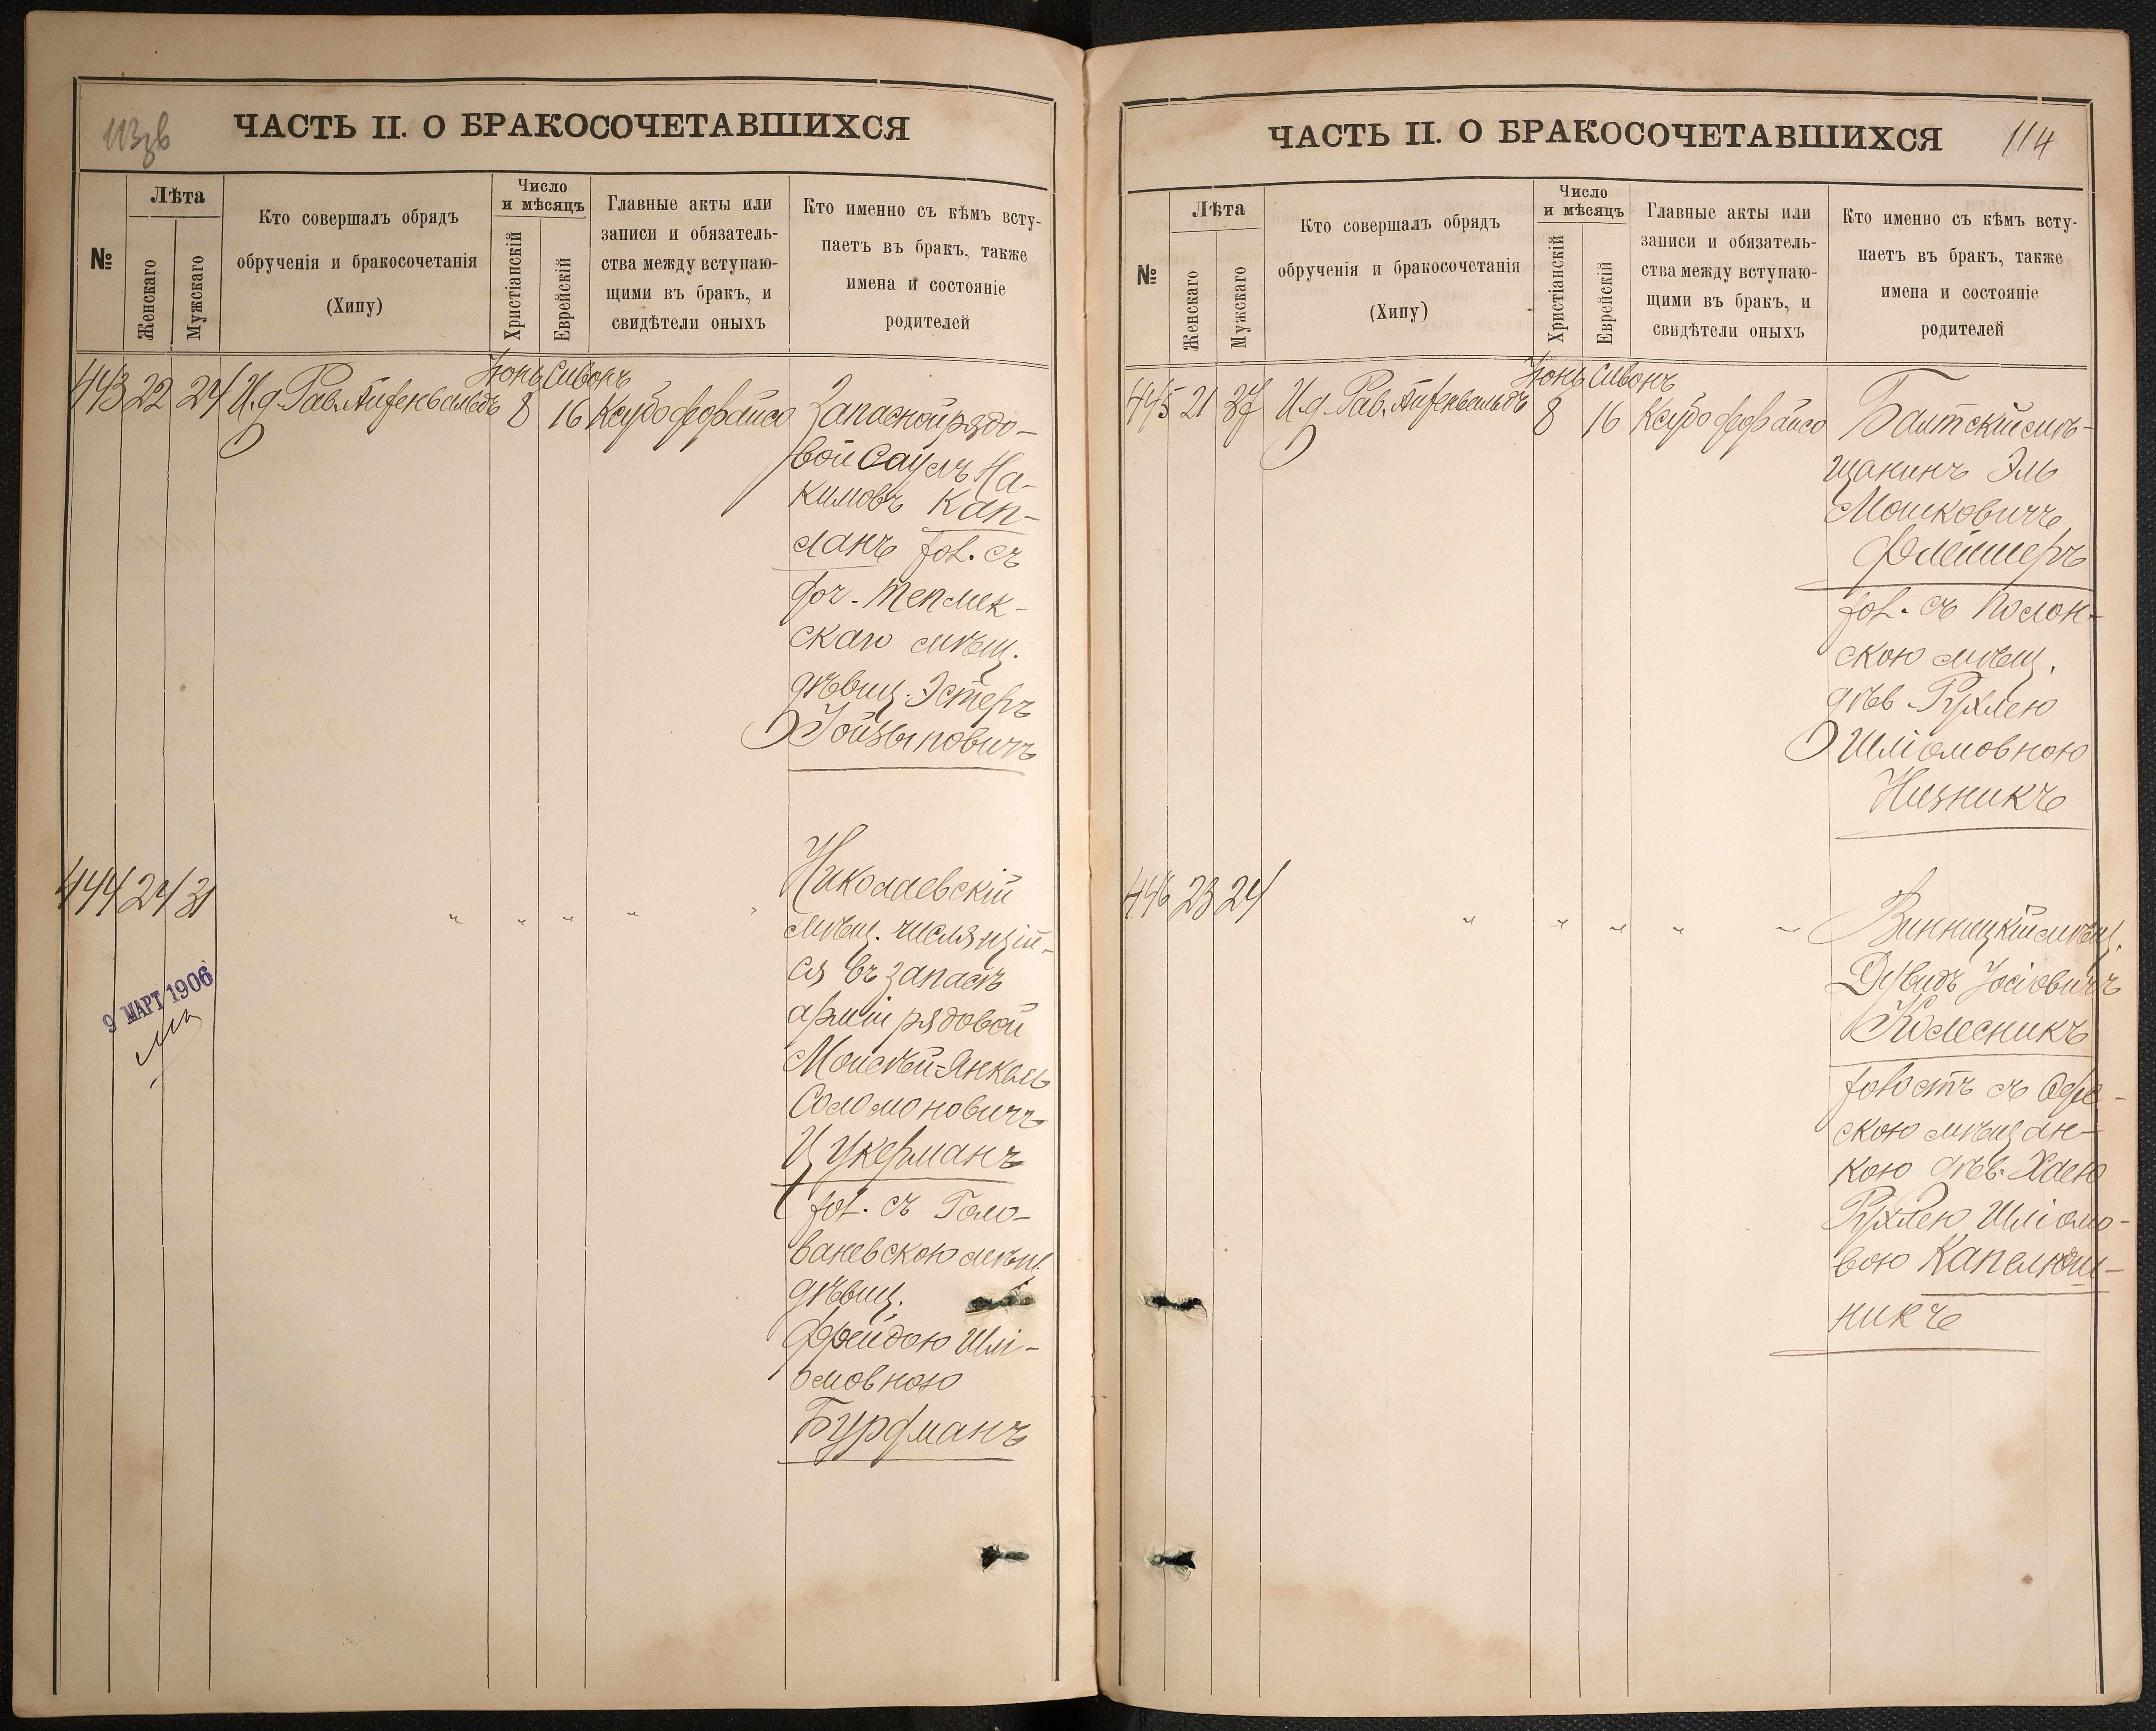 113 зв
ЧАСТЬ II. О БРАКОСОЧЕТАВШИХСЯ
№
Лѣта
Женскаго
Мужскаго
Кто совершалъ обрядъ
обрученія и бракосочетанія
(Хипу)
Число
и мѣсяцъ
Христіанскій
Еврейскій
Главные акты или
записи и обязатель-
ства между вступаю-
щими въ бракъ, и
свидѣтели оныхъ
Кто именно съ кѣмъ всту-
паетъ въ бракъ, также
имена и состояніе
родителей
Іюнь Сивонъ
443 22 24 И. д. Рав. 8 16 Запасной рядо-
вой Саулъ На-
химовъ Кап-
ланъ хол. съ
доч. Теплик-
скаго мѣщ.
дѣвиц. Эстеръ
444 24 31 " " " " " Николаевскій
мѣщ. числящій-
ся въ запасѣ
арміи рядовой
Моисѣй-Янкель
Соломоновичъ
Цукерманъ
хол. съ Голо-
ваневскою мѣщ.
дѣвиц.
Фрейдою Шлі-
омовною
Бурдманъ
9 МАРТ 1906
ЧАСТЬ II. О БРАКОСОЧЕТАВШИХСЯ
114
№
Лѣта
Женскаго
Мужскаго
Кто совершалъ обрядъ
обрученія и бракосочетанія
(Хипу)
Число
и мѣсяцъ
Христіанскій
Еврейскій
Главные акты или
записи и обязатель-
ства между вступаю-
щими въ бракъ, и
свидѣтели оныхъ
Кто именно съ кѣмъ всту-
паетъ въ бракъ, также
имена и состояніе
родителей
Іюнь Сивонъ
445 21 37 И. д. Рав. 8 16 Балтскій мѣ-
щанинъ Эль
Мошковичъ
Флейшеръ
хол. съ Полон-
скою мѣщ.
дѣв. Рухлею
Шліомовною
Низникъ
446 23 24 " " " " " Винницкій мѣщ.
Дувидъ Іосіовичъ
Колесникъ
холостъ съ Оде-
скою мѣщан-
кою дѣв. Хаею
Рухлею Шліомо-
вою Капелюш-
никъ